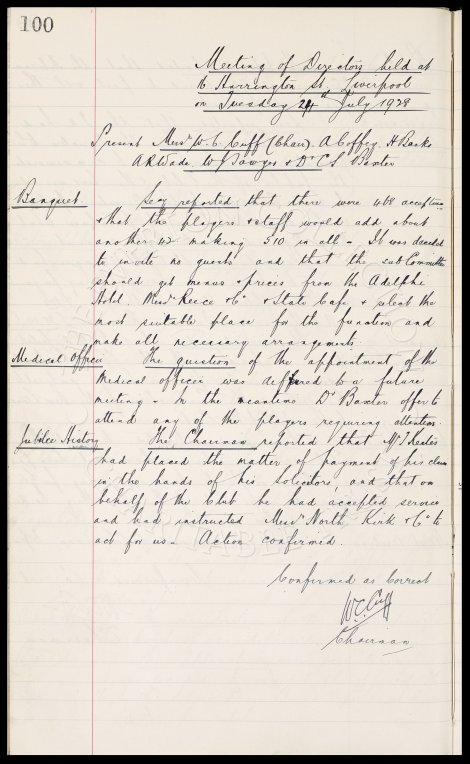 100
Meeting of Directors held at
16 Harrington St, Liverpool
on Tuesday 24th July 1928
Present Messrs W. C. Cuff (Chair). A Coffey, H Banks
A R Wade, W Sawyer & Dr C S Baxter
Banquet. Secy reported that there were 468 acceptances
& that the players & staff would add about
another 42 making 510 in all - It was decided
to invite no guests and that the sub Committee
should get menus & prices from the Adelphi
Hotel, Messrs Reece & Co & State Cafe & select the
most suitable place for the function and
make all necessary arrangements
Medical Officer The question of the appointment of the
Medical officer was deferred to a future
meeting - In the meantime Dr Baxter offer to
attend any of the players requiring attention.
Jubilee History The Chairman reported that Mr Keates
had placed the matter of payment of his claim
in the hands of his solicitors, and that on
behalf of the Club he had accepted service
and had instructed Messrs North, Kirk & Co to
act for us - Action confirmed.
Confirmed as Correct
W. C. Cuff
Chairman